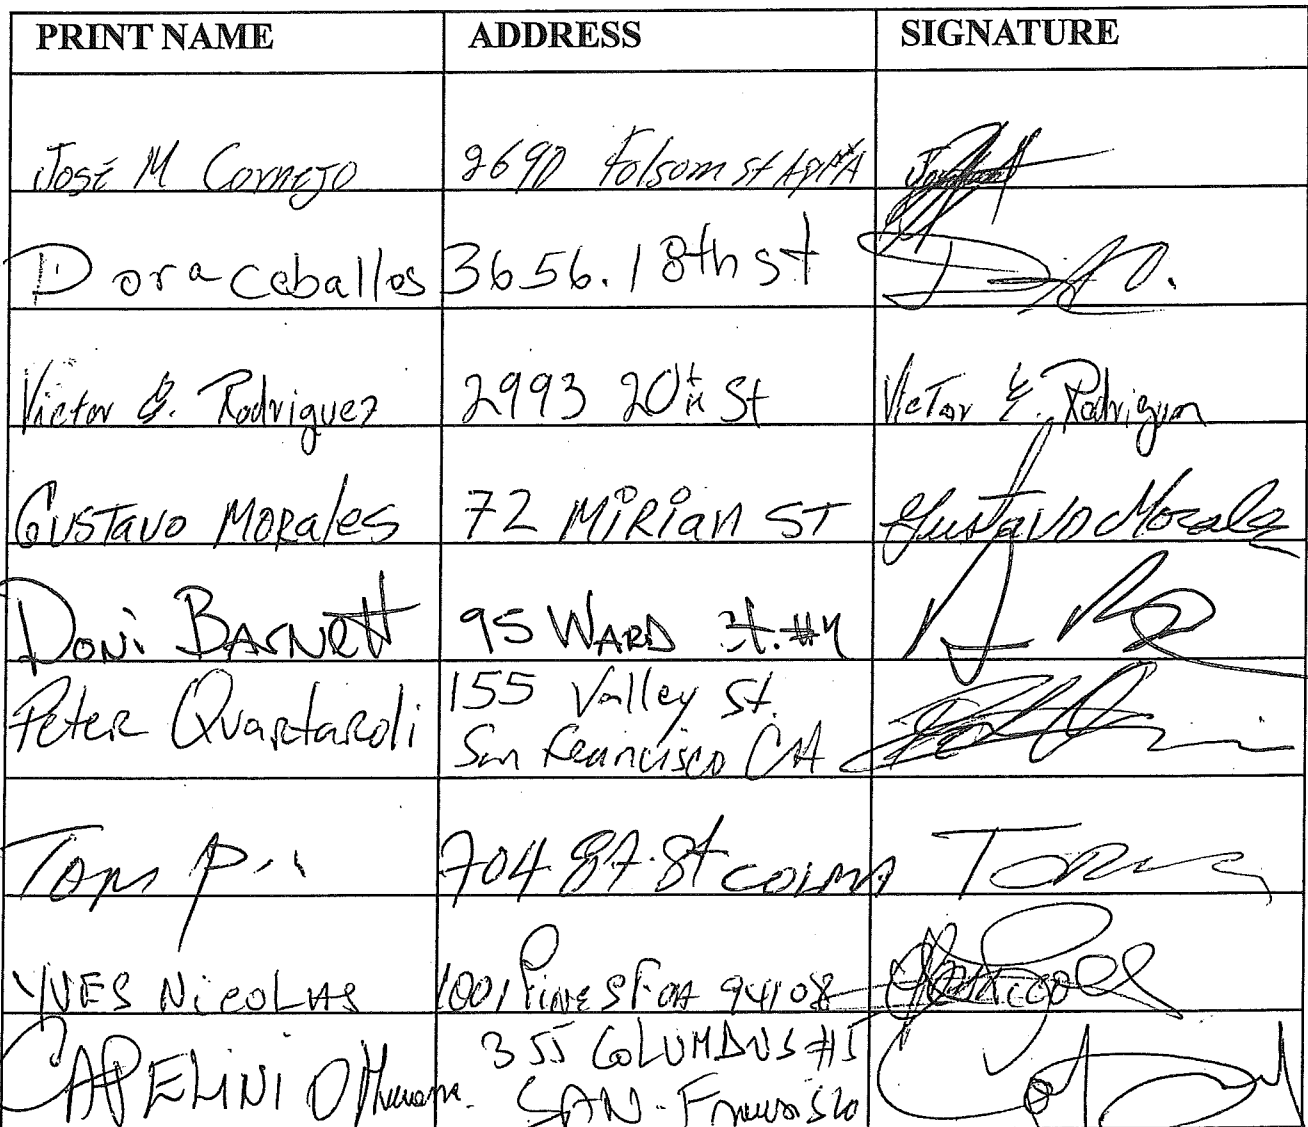 PRINT NAME ADDRESS SIGNATURE
José M Cornejo 2690 Folsom St Apt #A
Dora Ceballos 3656. 18th st
Victor E. Rodriguez 2993 20th St Victor E. Rodriguez
Gustavo Morales 72 Mirian ST Gustavo Morales
Doni Barnett 95 Ward St. #4
Peter Quartaroli 155 Valley St.
San Francisco CA
704 87. St Colma
Yves Nicolas 1001 Pine SF CA 94108
Capelini 355 Columbus #5
San-Francisco